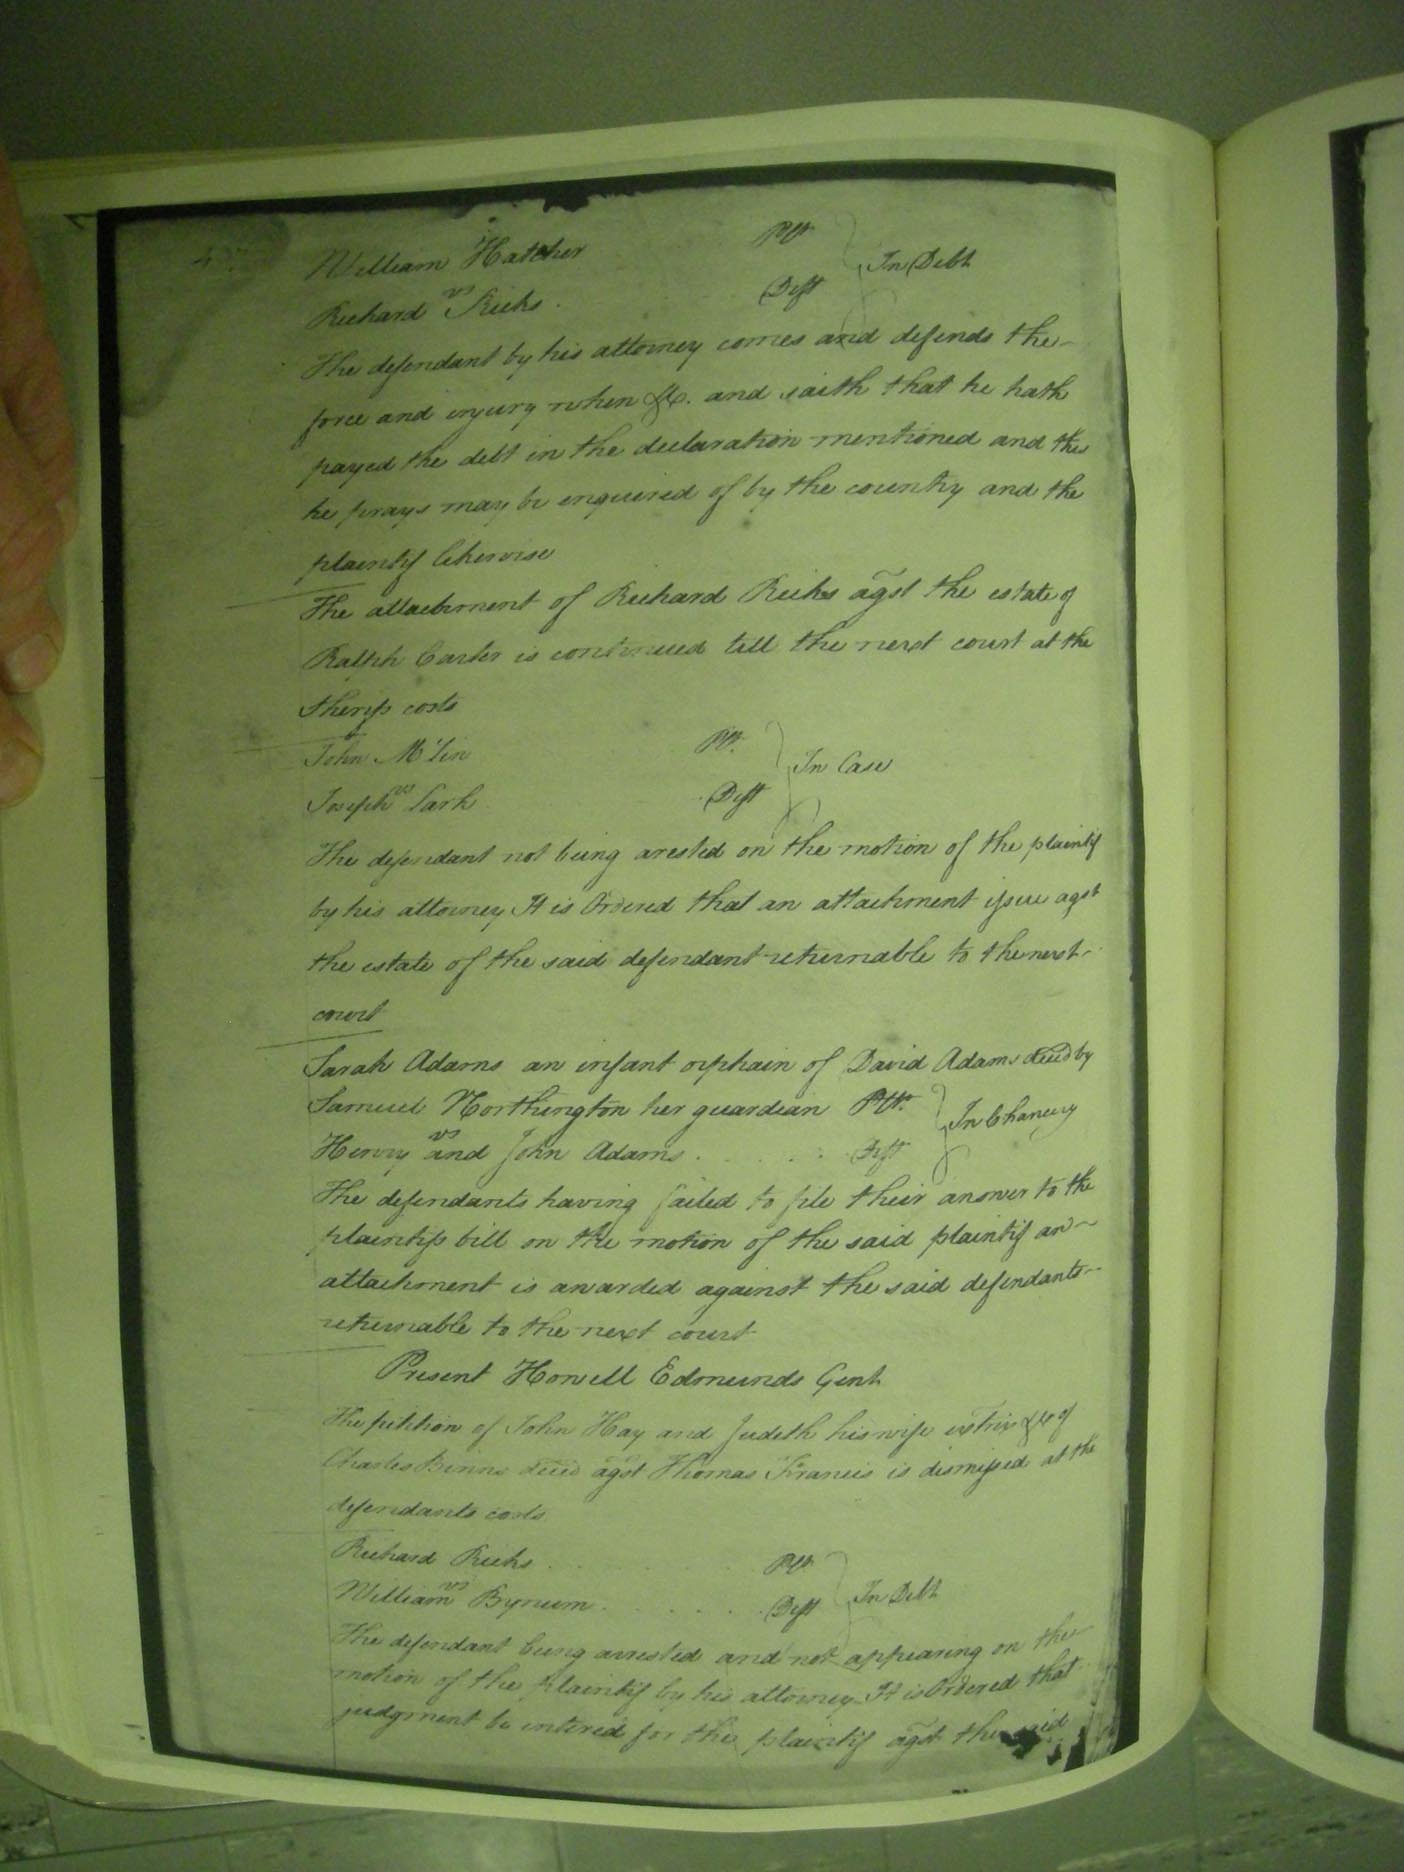 William Hatcher Plt.
vs In Debt
Richard Ricks. Deft
The defendant by his attorney comes and defends the
force and injury when &c. and saith that he hath
payed the debt in the declaration mentioned and this
he prays may be enquired of by the country and the
plaintif likewise
The attachment of Richard Ricks agst the estate of
Ralph Carter is continued till the next court at the
sherifs costs
John McLin Plt.
vs In Case
Joseph Lark Deft
The defendant not being arested on the motion of the plaintif
by his attorney It is Ordered that an attachment issue agst
the estate of the said defendant returnable to the next
court
Sarah Adams an infant orphain of David Adams deced by
Samuel Northington her guardian Plt.
vs In Chancery
Henry and John Adams . . . . Deft
The defendants having failed to file their answer to the
plaintifs bill on the motion of the said plaintif an
attachment is awarded against the said defendants
returnable to the next court
Present Howell Edmunds Gent
The petition of John Hay and Judeth his wife extrix &c of
Charles Binns deced agst Thomas Francis is dismissed at the
defendants costs
Richard Ricks . . . Plt.
vs In Debt
William Bynum . . . . . Deft
The defendant being arrested and not appearing on the
motion of the plaintif by his attorney It is Ordered that
judgment be entered for the plaintif agst the said